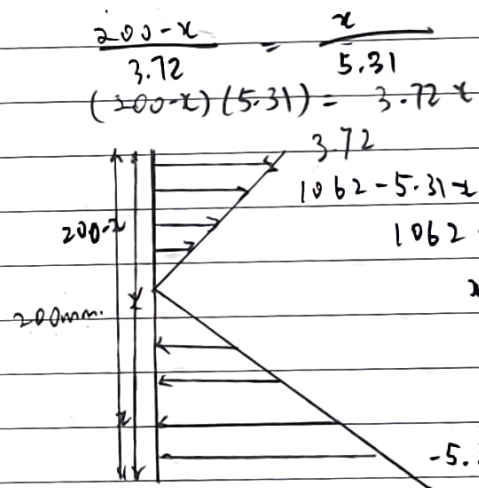 200-x / 3.72 = x / 5.31
(200-x)(5.31) = 3.72x
3.72
1062-5.31x
1062
200-x
x
200mm.
x
-5.